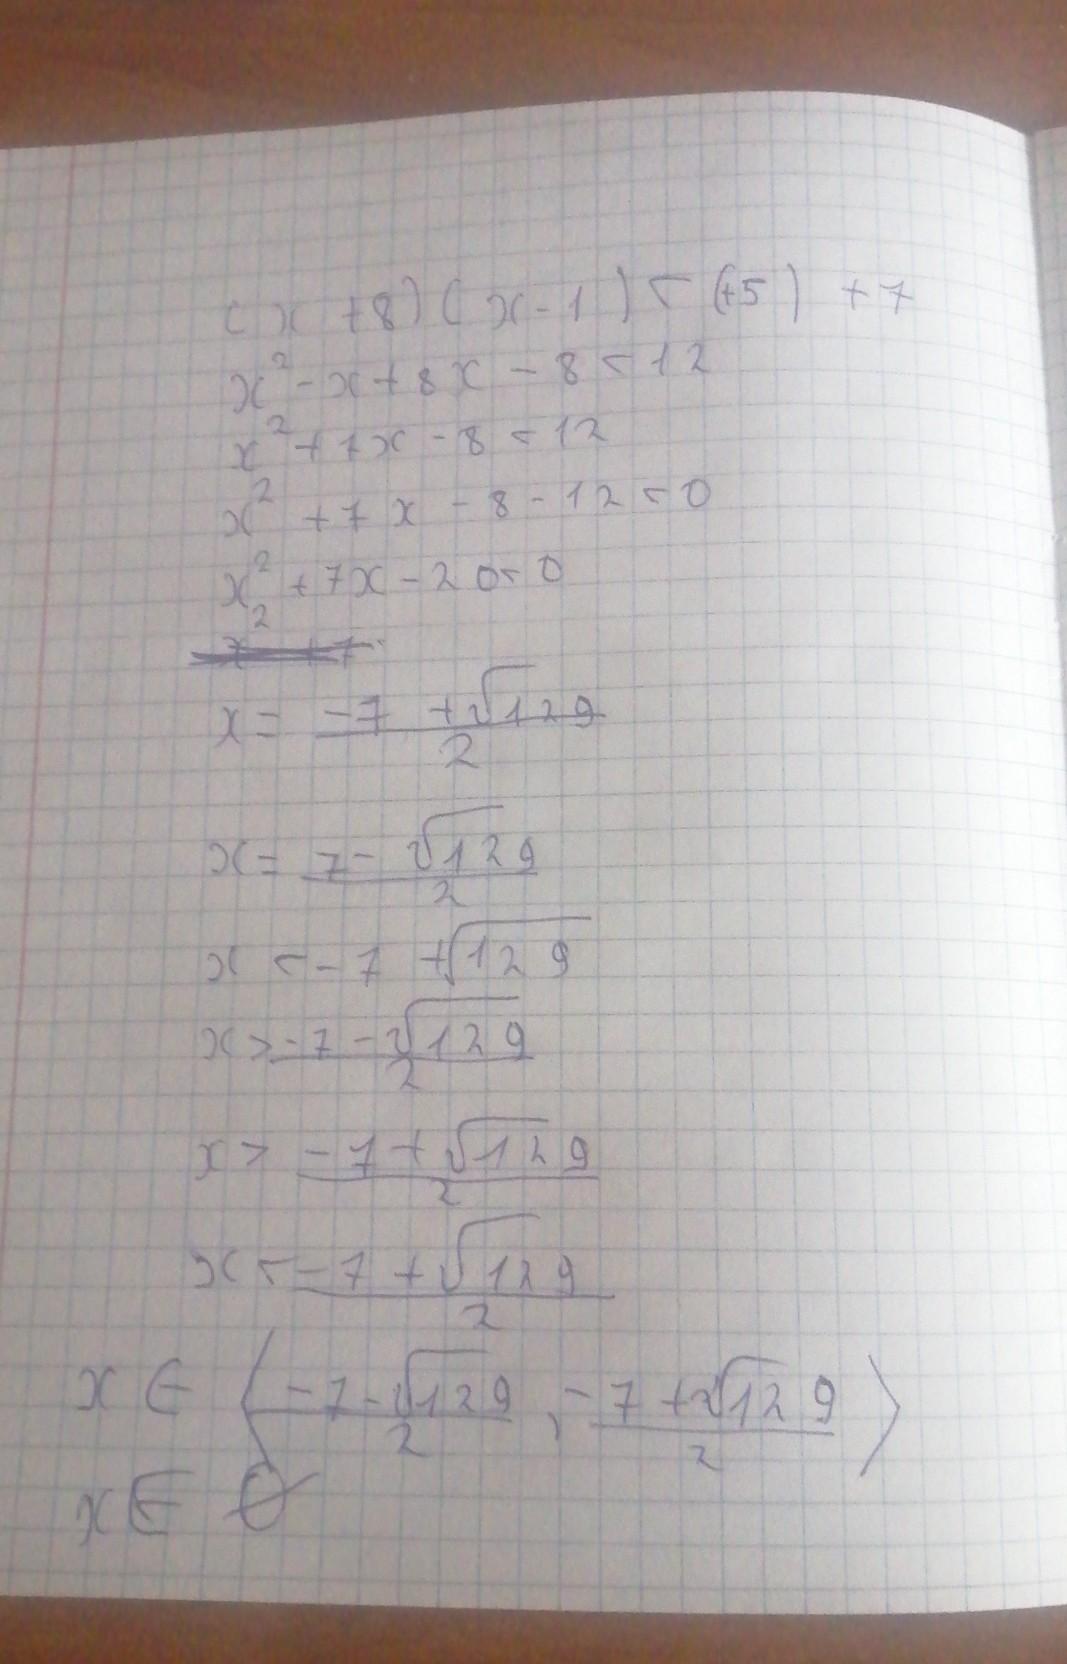 (x+8)(x-1) < (+5) +7
x²-x+8x-8<12
x²+7x-8<12
x²+7x-8-12<0
x²+7x-20<0
x = (-7+√129)/2
x = (7-√129)/2
x < -7+√129
x > (-7-√129)/2
x > (-7+√129)/2
x < (-7+√129)/2
x ∈ ⟨(-7-√129)/2, (-7+√129)/2⟩
x ∈ ∅